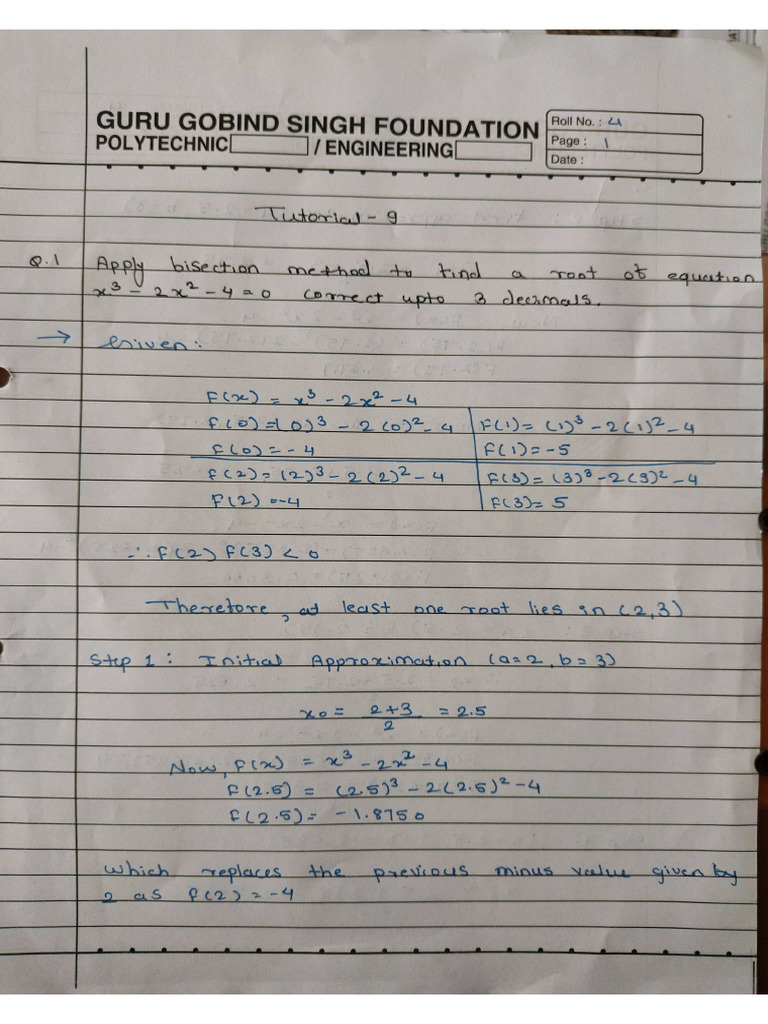 GURU GOBIND SINGH FOUNDATION
POLYTECHNIC / ENGINEERING
Roll No. : 41
Page : 1
Date :
Tutorial - 9
Q.1 Apply bisection method to find a root of equation
x³ - 2x² - 4 = 0 correct upto 3 decimals.
→ Given:
F(x) = x³ - 2x² - 4
F(0) = (0)³ - 2(0)² - 4
F(0) = - 4
F(1) = (1)³ - 2(1)² - 4
F(1) = -5
F(2) = (2)³ - 2(2)² - 4
F(2) = -4
F(3) = (3)³ - 2(3)² - 4
F(3) = 5
∴ F(2) F(3) < 0
Therefore, at least one root lies in (2,3)
Step 1 : Initial Approximation (a=2, b=3)
x0 = 2+3/2 = 2.5
Now, F(x) = x³ - 2x² - 4
F(2.5) = (2.5)³ - 2(2.5)² - 4
F(2.5) = -1.8750
which replaces the previous minus value given by
2 as F(2) = -4